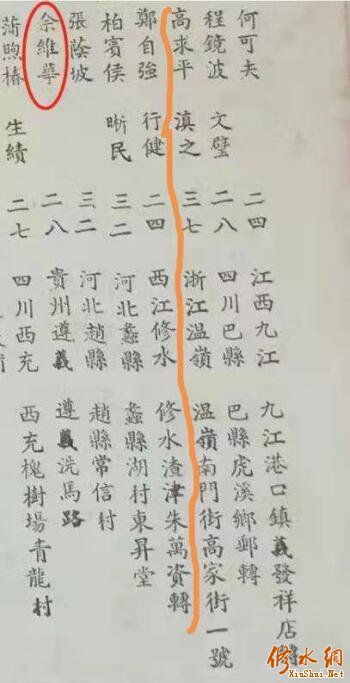 何可夫 二四 江西九江 九江港口鎮義發祥店
程鏡波 文璧 二八 四川巴縣 巴縣虎溪鄉郵轉
高求平 滇之 三七 浙江温嶺 温嶺南門街高家街一號
鄭自強 行健 二四 西江修水 修水渣津朱萬資轉
柏賓侯 晰民 三二 河北蠡縣 蠡縣湖村東昇堂
張蔭坡 三二 河北趙縣 趙縣常信村
余維華 二八 貴州遵義 遵義洗馬路
蒲煦椿 生績 二七 四川西充 西充槐樹場青龍村
修水網
XinShui.Net